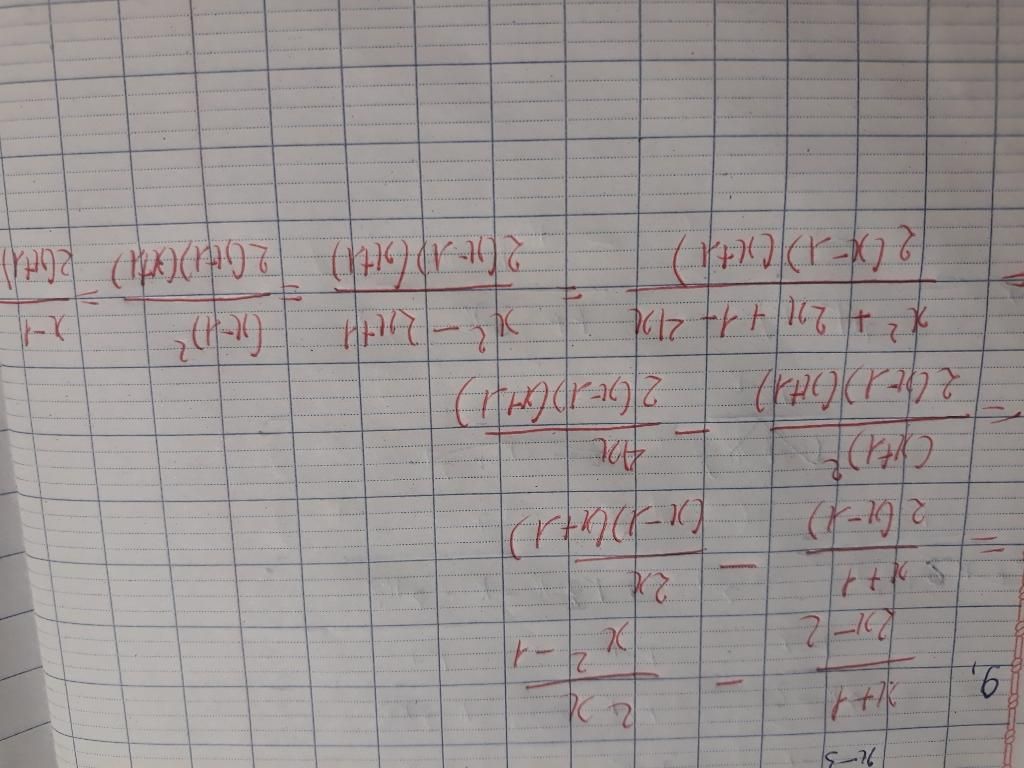 x-5
9, (x+1)/(2x-2) - 2x/(x²-1)
= (x+1)/(2(x-1)) - 2x/((x-1)(x+1))
= (x+1)²/(2(x-1)(x+1)) - 4x/(2(x-1)(x+1))
= (x²+2x+1-4x)/(2(x-1)(x+1)) = (x²-2x+1)/(2(x-1)(x+1)) = (x-1)²/(2(x-1)(x+1)) = (x-1)/(2(x+1))